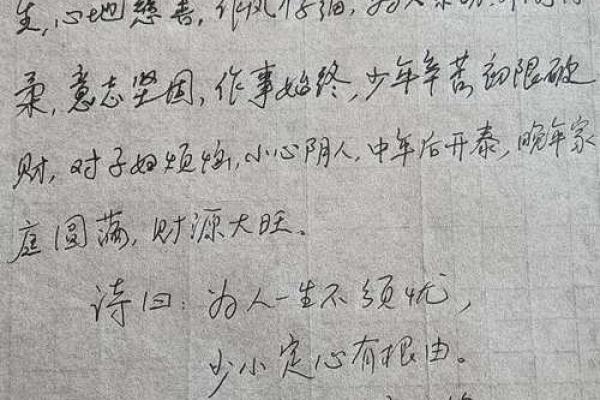 生,心地慈善,作风仔细,为人
柔,意志坚固,作事始终,少年辛苦初限破
财,对子烦恼,小心阴人,中年后开泰,晚年家
庭圆满,财源大旺。
诗曰:为人一生不须忧,
少小定心有根由。